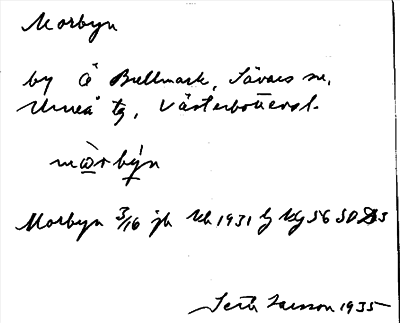 Morbyn
by å Bullmark, Sävars sn,
Umeå tg, Västerbottensl.
mòrbýn
Morbyn 3/16 jb Ub 1931 by Kg 56 SD
Larsson 1935